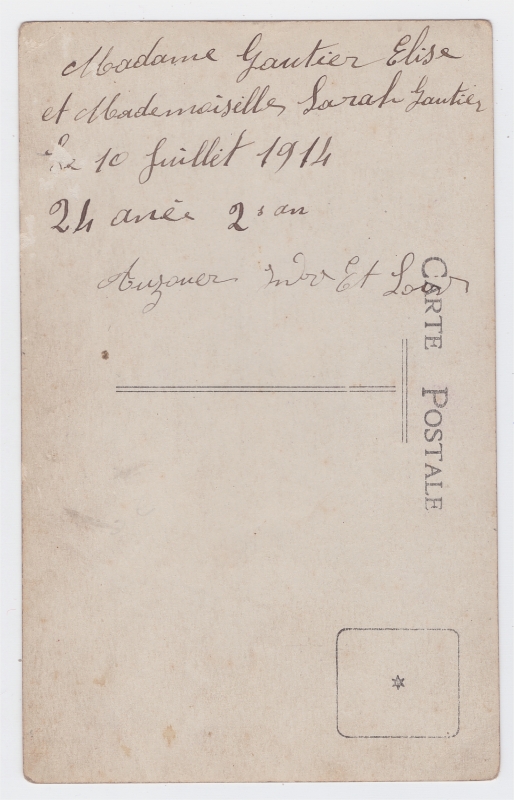 Madame Gautier Elise
et Mademoiselle Sarah Gautier
Le 10 Juillet 1914
24 anée 2 s an
Auzouer Indr Et Loir
CARTE POSTALE